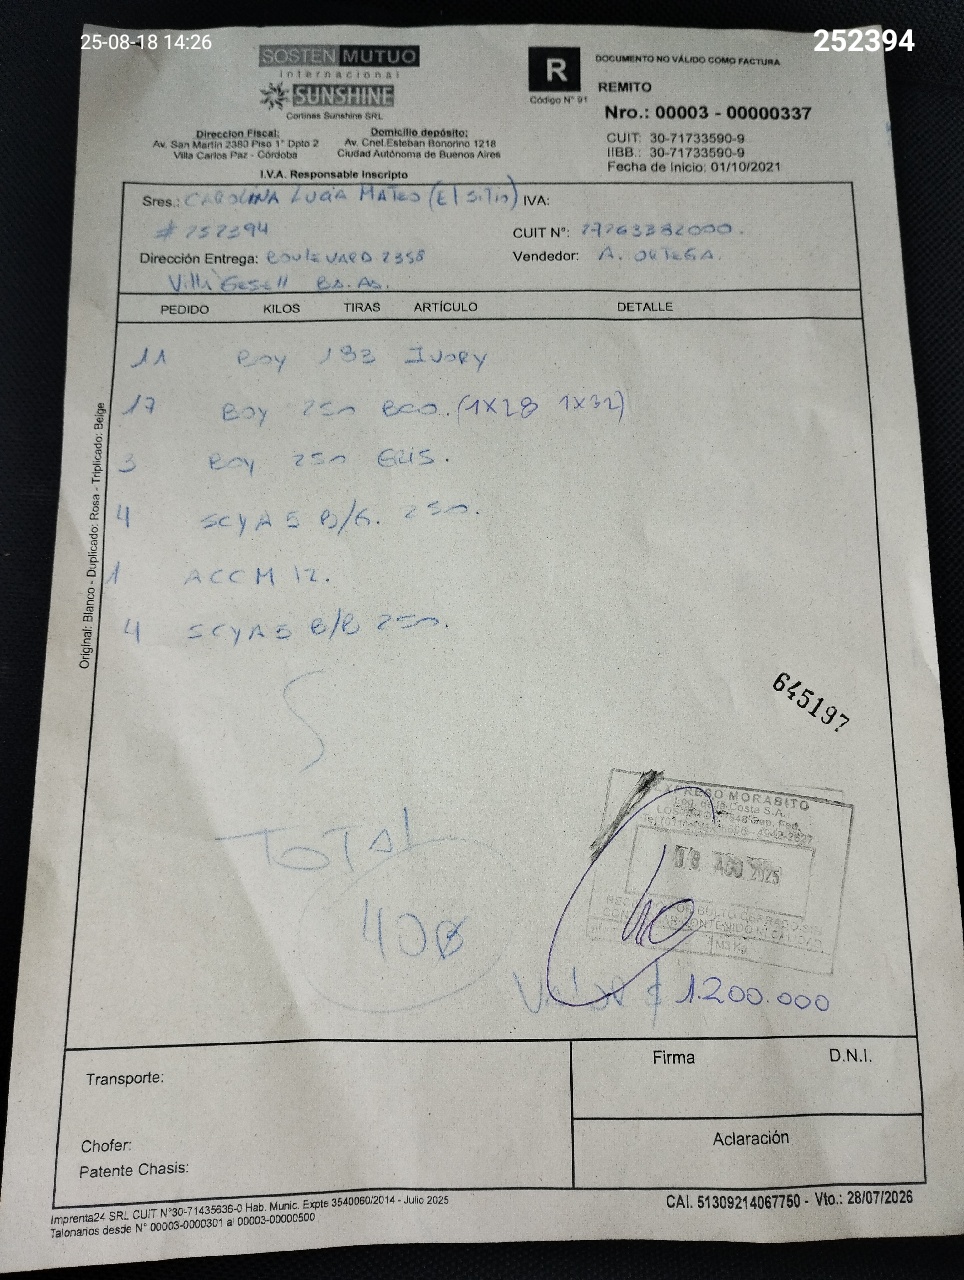 25-08-18 14:26
252394
SOSTEN MUTUO
internacional
SUNSHINE
Cortinas Sunshine SRL
Dirección Fiscal:
Av. San Martín 2380 Piso 1° Dpto 2
Villa Carlos Paz - Córdoba
Domicilio depósito:
Av. Cnel.Esteban Bonorino 1218
Ciudad Autónoma de Buenos Aires
I.V.A. Responsable Inscripto
R
Código N° 91
DOCUMENTO NO VÁLIDO COMO FACTURA
REMITO
Nro.: 00003 - 00000337
CUIT: 30-71733590-9
IIBB.: 30-71733590-9
Fecha de Inicio: 01/10/2021
Sres.: CAROLINA LUCIA MATEO (El SITIO) IVA:
# 252394 CUIT N°: 27263382000.
Dirección Entrega: BOULEVARD 2358 Vendedor: A. ORTEGA.
Villa Gesell BS.AS.
PEDIDO KILOS TIRAS ARTÍCULO DETALLE
11 BOY 183 IVORY
17 BOY 250 BCO. (1X28 1X32)
3 BOY 250 GRIS.
4 SCYA 5 B/G. 250.
1 ACCM 12.
4 SCYA 5 B/B 250.
645197
TOTAL
40B
EXPRESO MORABITO
Log. de la Costa S.A.
18 AGO 2025
40
M3 Kg.
VALOR $ 1.200.000
Original: Blanco - Duplicado: Rosa - Triplicado: Beige
Transporte:
Chofer:
Patente Chasis:
Firma D.N.I.
Aclaración
Imprenta24 SRL CUIT N°30-71435636-0 Hab. Munic. Expte 3540060/2014 - Julio 2025
Talonarios desde N° 00003-0000301 al 00003-00000500
CAI. 51309214067750 - Vto.: 28/07/2026